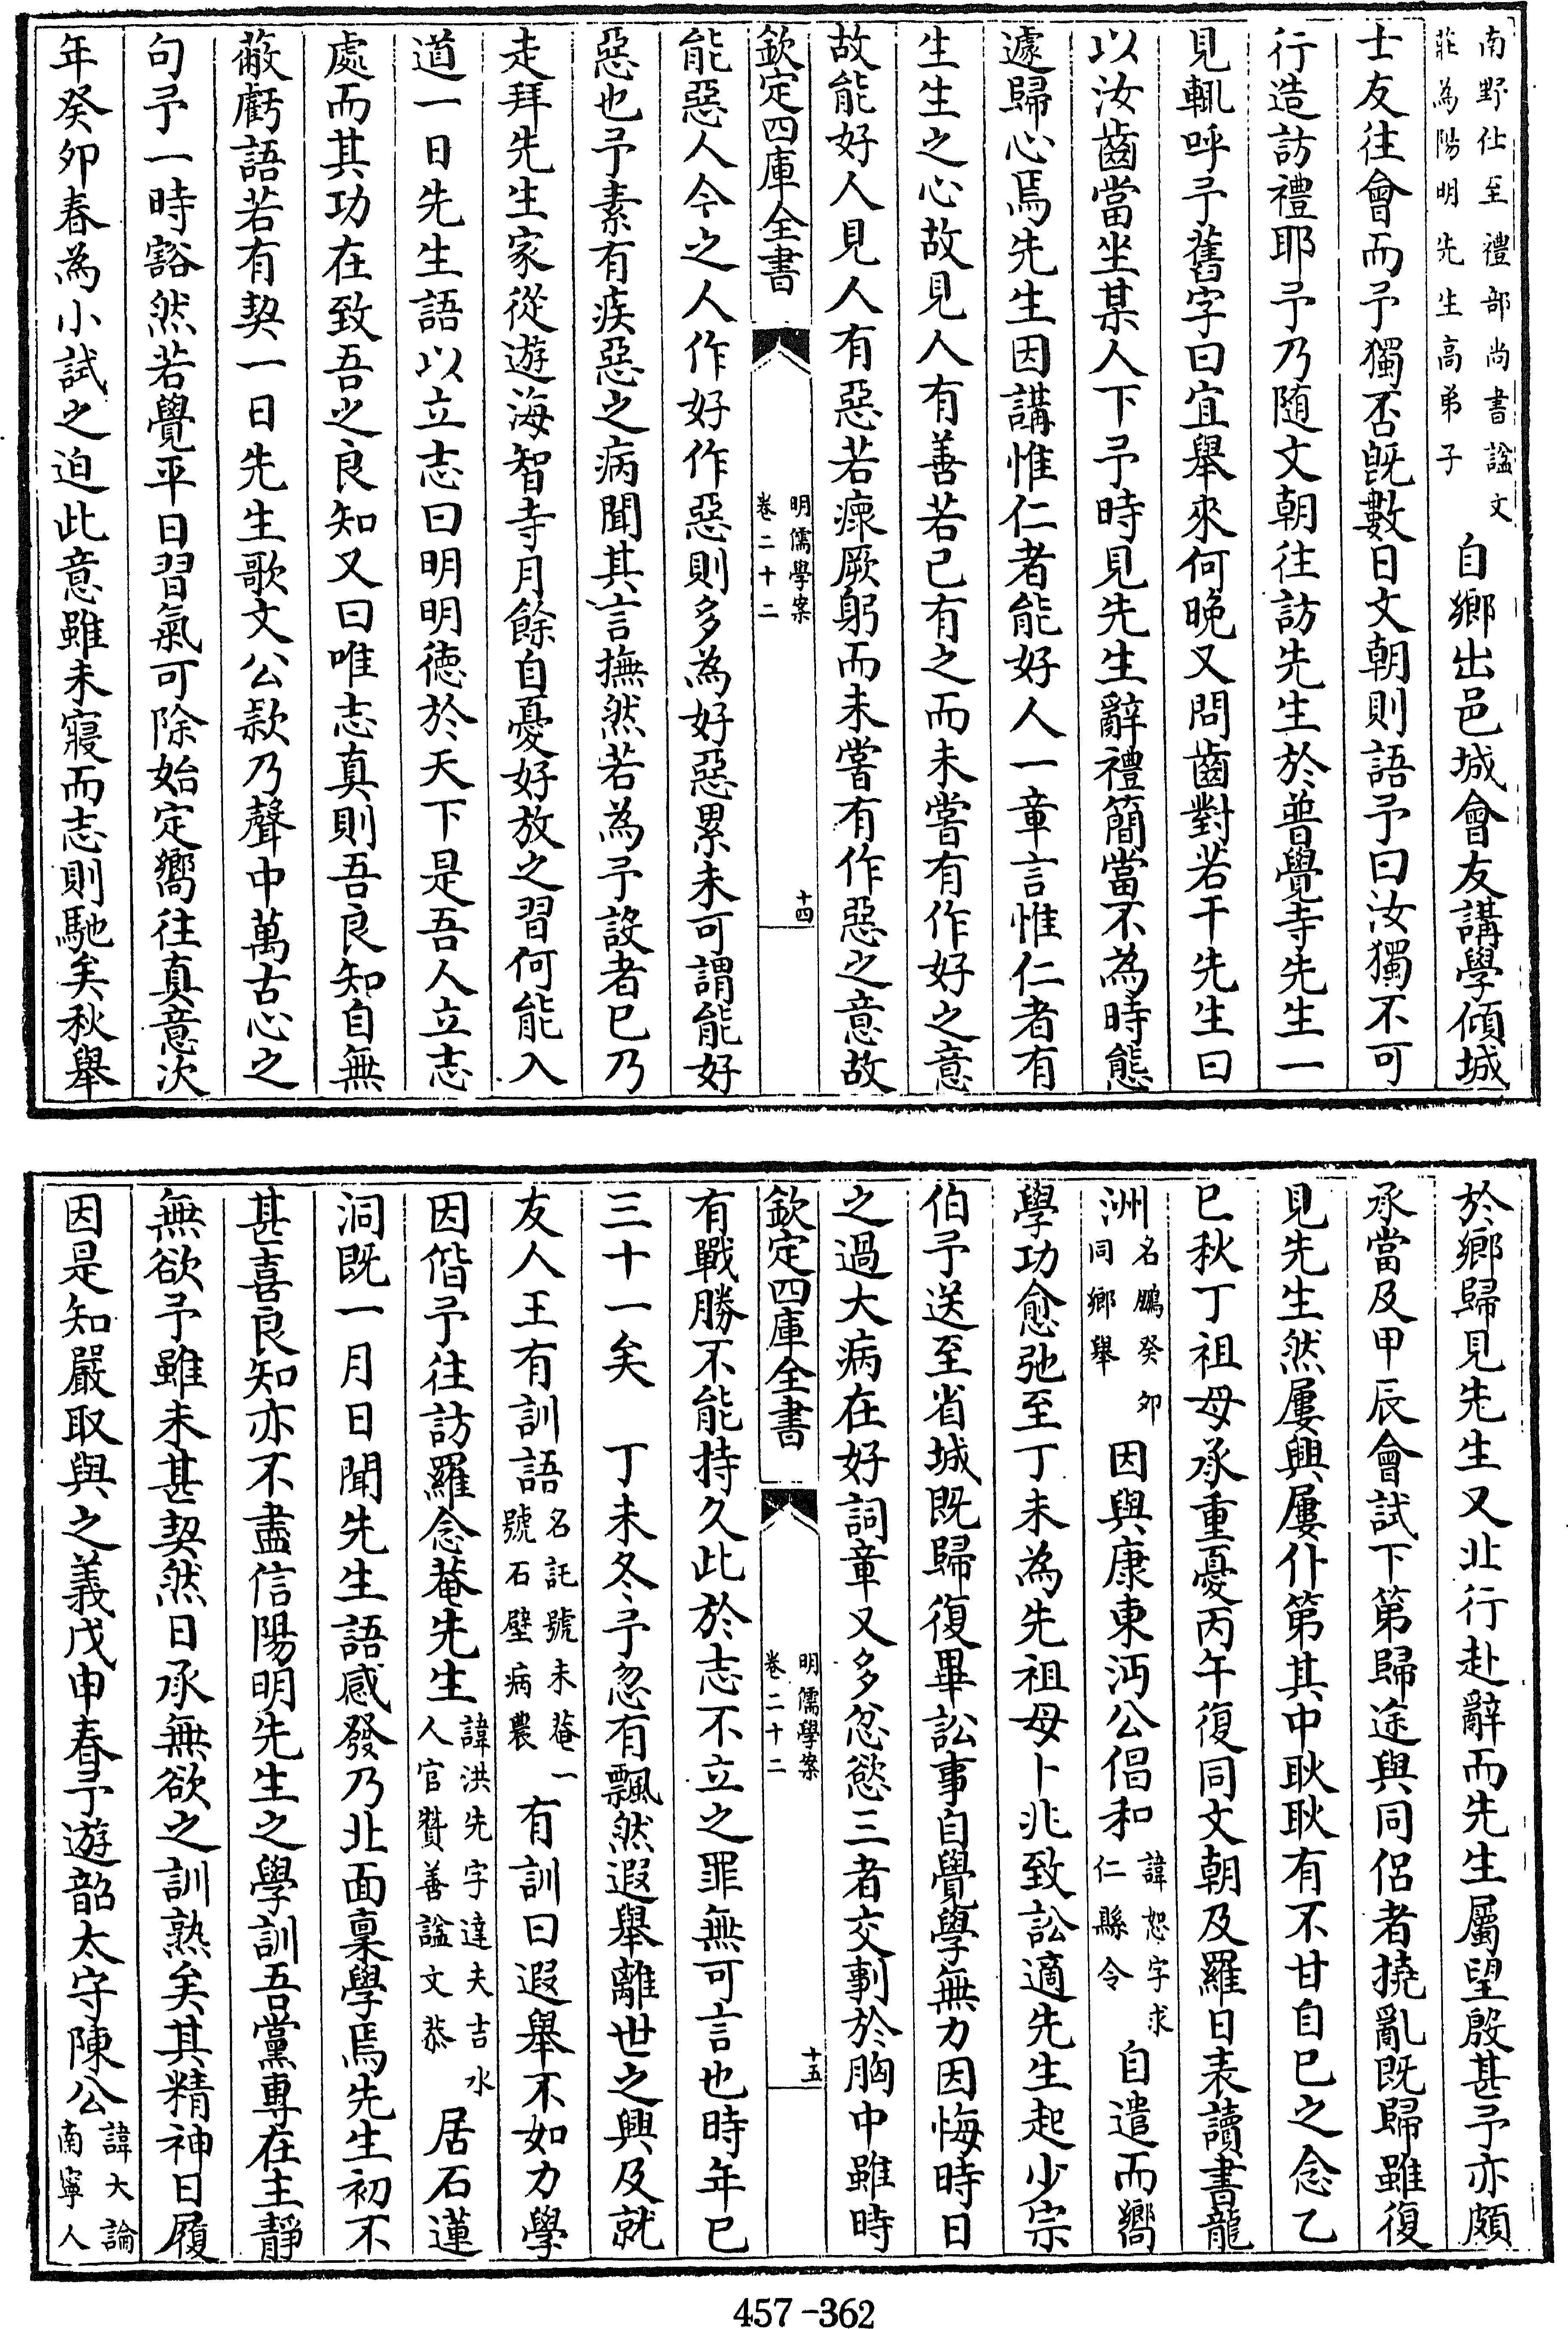 南野仕至禮部尚書諡文
莊為陽明先生高弟子
自鄉出邑城會友講學傾城
士友往會而予獨否既數日文朝則語予曰汝獨不可
行造訪禮耶予乃随文朝往訪先生於普覺寺先生一
見輒呼予舊字曰宜舉來何晚又問齒對若干先生曰
以汝齒當坐某人下予時見先生辭禮簡當不為時態
遽歸心焉先生因講惟仁者能好人一章言惟仁者有
生生之心故見人有善若己有之而未嘗有作好之意
故能好人見人有惡若瘝厥躬而未嘗有作惡之意故
欽定四庫全書
明儒學案
卷二十二
十四
能惡人今之人作好作惡則多為好惡累未可謂能好
惡也予素有疾惡之病聞其言撫然若為予設者已乃
走拜先生家從遊海智寺月餘自憂好放之習何能入
道一日先生語以立志曰明明徳於天下是吾人立志
處而其功在致吾之良知又曰唯志真則吾良知自無
蔽虧語若有契一日先生歌文公款乃聲中萬古心之
句予一時豁然若覺平日習氣可除始定嚮往真意次
年癸卯春為小試之迫此意雖未寢而志則馳矣秋舉
於鄉歸見先生又北行赴辭而先生屬望殷甚予亦頗
承當及甲辰會試下第歸途與同侶者撓亂既歸雖復
見先生然屢興屢仆第其中耿耿有不甘自已之念乙
巳秋丁祖母承重憂丙午復同文朝及羅日表讀書龍
洲
名鵬癸卯
同鄉舉
因與康東沔公倡和
諱恕字求
仁縣令
自遣而嚮
學功愈弛至丁未為先祖母卜兆致訟適先生起少宗
伯予送至省城既歸復畢訟事自覺學無力因悔時日
之過大病在好詞章又多忿慾三者交剚於胸中雖時
欽定四庫全書
明儒學案
卷二十二
十五
有戰勝不能持久此於志不立之罪無可言也時年已
三十一矣　丁未冬予忽有飄然遐舉離世之興及就
友人王有訓語
名託號未菴一
號石壁病農
有訓曰遐舉不如力學
因偕予往訪羅念菴先生
諱洪先字達夫吉水
人官贊善諡文恭
居石蓮
洞既一月日聞先生語感發乃北面稟學焉先生初不
甚喜良知亦不盡信陽明先生之學訓吾黨專在主靜
無欲予雖未甚契然日承無欲之訓熟矣其精神日履
因是知嚴取與之義戊申春予遊韶太守陳公
諱大論
南寧人
457-362